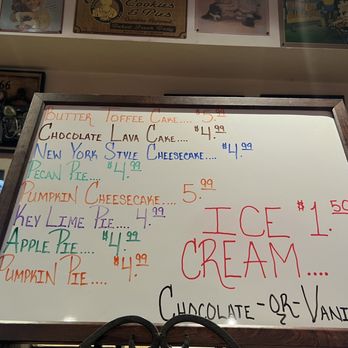 Cookies
Butter Toffee Cake.... $5.99
Chocolate Lava Cake.... $4.99
New York Style Cheesecake.... $4.99
Pecan Pie.... $4.99
Pumpkin Cheesecake.... 5.99
Key Lime Pie.... 4.99
Apple Pie.... $4.99
Pumpkin Pie.... $4.99
ICE $1.50
CREAM....
Chocolate -or- Vani